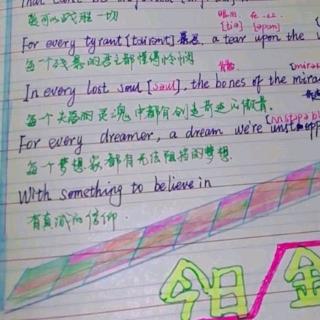 真可以战胜一切
眼泪
[tiə] [əpɒn]
For every tyrant [tairənt] 暴君, a tear upon the
每个残暴的君主都懂得怜悯
In every lost soul [səul], the bones of the
每个失落的灵魂中都有创造奇迹的傲骨.
For every dreamer, a dream we're unstopp
每个梦想家都有无法阻挡的梦想.
With something to believe in
有真诚的信仰.
今日
金